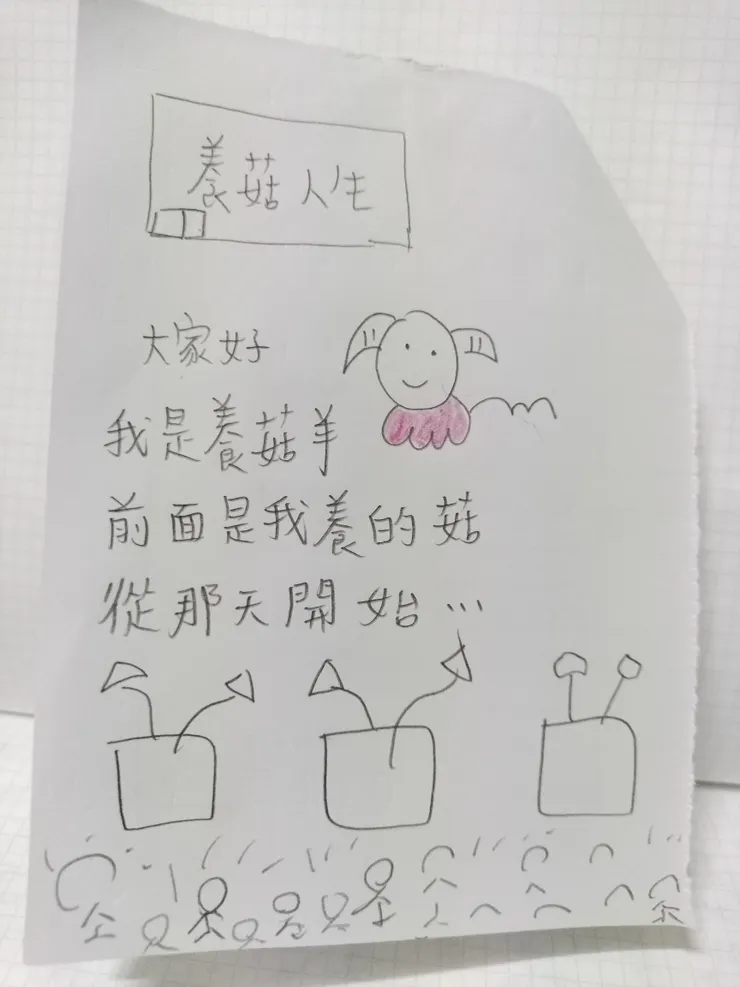 養菇人生
大家好
我是養菇羊
前面是我養的菇
從那天開始…